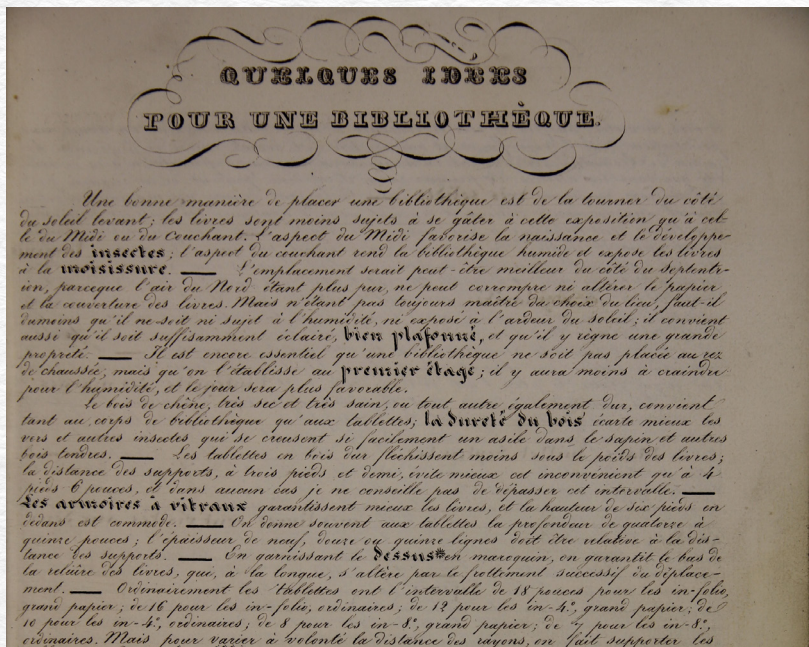 QUELQUES IDÉES
POUR UNE BIBLIOTHÈQUE.
Une bonne manière de placer une bibliothèque est de la tourner du côté
du soleil levant; les livres sont moins sujets à se gâter à cette exposition qu'à cel-
le du Midi ou du Couchant. L'aspect du Midi favorise la naissance et le développe-
ment des insectes; l'aspect du couchant rend la bibliothèque humide et expose les livres
à la moisissure. — L'emplacement serait peut-être meilleur du côté du septentr-
ion, parceque l'air du Nord étant plus pur, ne peut corrompre ni altérer le papier
et la couverture des livres. Mais n'étant pas toujours maître du choix du lieu, faut-il
dumoins qu'il ne soit ni sujet à l'humidité, ni exposé à l'ardeur du soleil; il convient
aussi qu'il soit suffisamment éclairé, bien plafonné, et qu'il y règne une grande
propreté. — Il est encore essentiel qu'une bibliothèque ne soit pas placée au rez
de chaussée, mais qu'on l'établisse au premier étage; il y aura moins à craindre
pour l'humidité, et le jour sera plus favorable.
Le bois de chêne, très sec et très sain, ou tout autre également dur, convient
tant au corps de bibliothèque qu'aux tablettes; la dureté du bois écarte mieux les
vers et autres insectes qui se creusent si facilement un asile dans le sapin et autres
bois tendres. — Les tablettes en bois dur fléchissent moins sous le poids des livres;
la distance des supports, à trois pieds et demi, évite mieux cet inconvénient qu'à 4
pieds 6 pouces, et dans aucun cas je ne conseille pas de dépasser cet intervalle. —
Les armoires à vitraux garantissent mieux les livres, et la hauteur de six pieds en
dedans est commode. — On donne souvent aux tablettes la profondeur de quatorze à
quinze pouces; l'épaisseur de neuf, douze ou quinze lignes doit être relative à la dis-
tance des supports. — En garnissant le dessus* en maroquin, on garantit le bas de
la reliûre des livres, qui, à la longue, s'altère par le frottement successif du déplace-
ment. — Ordinairement les tablettes ont l'intervalle de 18 pouces pour les in-folio,
grand papier; de 16 pour les in-folio, ordinaires; de 12 pour les in-4°, grand papier; de
10 pour les in-4°, ordinaires; de 8 pour les in-8°, grand papier; de 7 pour les in-8°,
ordinaires. Mais pour varier à volonté la distance des rayons, on fait supporter les